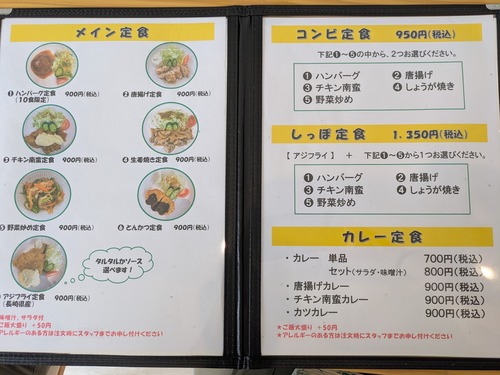 メイン定食
❶ハンバーグ定食 900円(税込)
(10食限定)
❷唐揚げ定食 900円(税込)
❸チキン南蛮定食 900円(税込)
❹生姜焼き定食 900円(税込)
❺野菜炒め定食 900円(税込)
❻とんかつ定食 900円(税込)
タルタルかソース
選べます!
アジフライ定食 900円(税込)
(長崎県産)
味噌汁、サラダ付
ご飯大盛り +50円
*アレルギーのある方は注文時にスタッフまでお申し付けください
コンビ定食 950円(税込)
下記❶~❺の中から、2つお選びください。
❶ハンバーグ ❷唐揚げ
❸チキン南蛮 ❹しょうが焼き
❺野菜炒め
しっぽ定食 1.350円(税込)
【アジフライ】 + 下記❶~❺から1つお選びください。
❶ハンバーグ ❷唐揚げ
❸チキン南蛮 ❹しょうが焼き
❺野菜炒め
カレー定食
・カレー 単品 700円(税込)
セット(サラダ・味噌汁) 800円(税込)
・唐揚げカレー 900円(税込)
・チキン南蛮カレー 900円(税込)
・カツカレー 900円(税込)
*ご飯大盛り +50円
*アレルギーのある方は注文時にスタッフまでお申し付けください